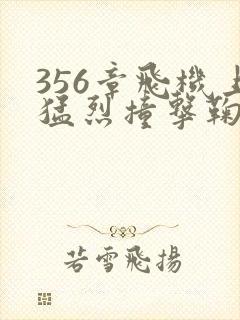 356章飛機上
猛烈撞擊鞠
若雪飛揚